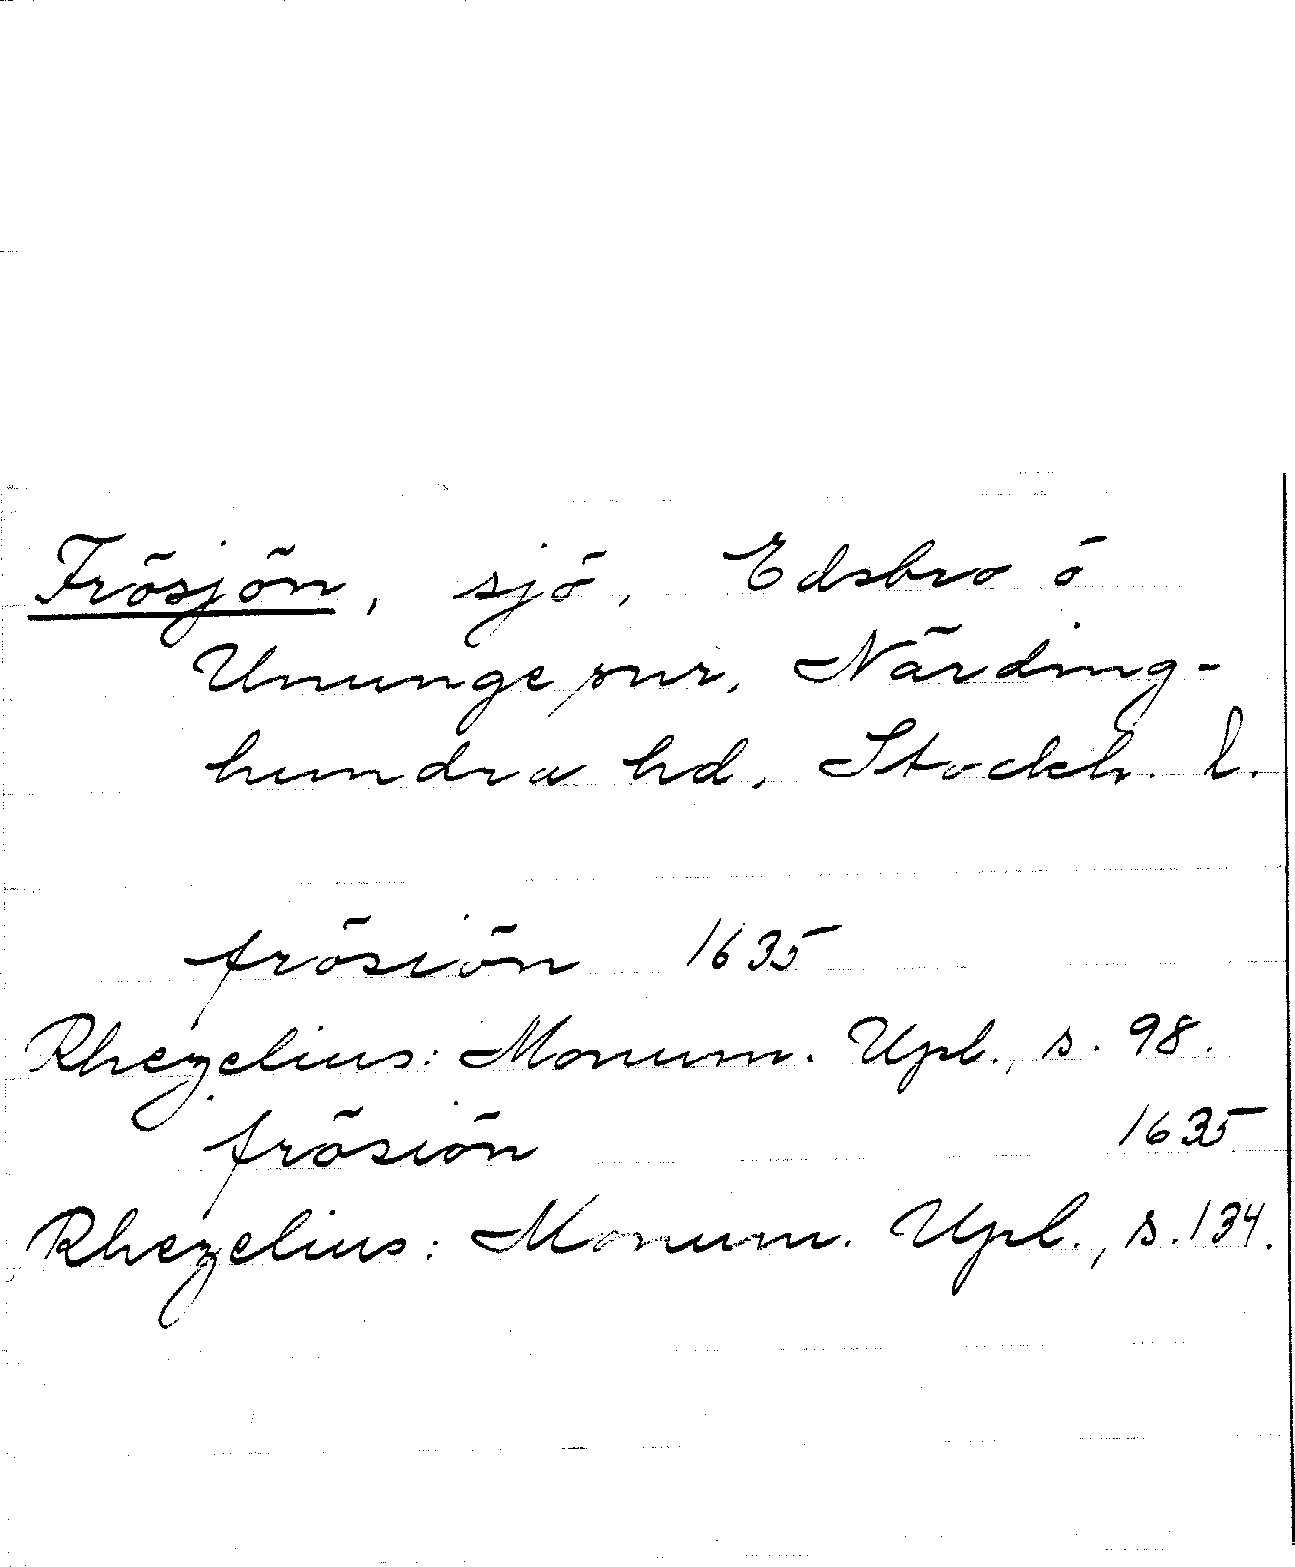 Frösjön, sjö, Edsbro o
Ununge snr, Närding-
hundra hd, Stockh. l.
frösiön 1635
Rhezelius: Monum. Upl., s. 98.
frösiön 1635
Rhezelius: Monum. Upl., s. 134.